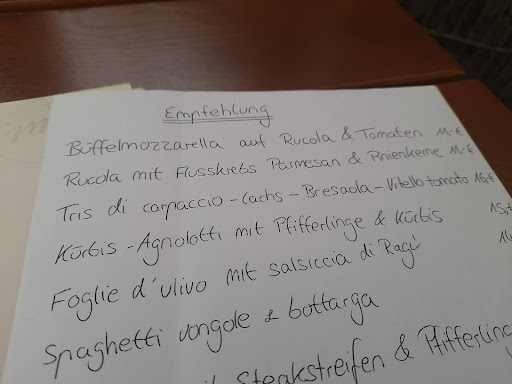 Empfehlung
Büffelmozzarella auf Rucola & Tomaten 14.-€
Rucola mit Flusskrebs Parmesan & Pinienkerne 14.-€
Tris di carpaccio - Lachs - Bresaola - Vitello tomato
Kürbis - Agnolotti mit Pfifferlinge & Kürbis 15,
Foglie d'ulivo mit salsiccia di Ragù
Spaghetti vongole & bottarga
Steakstreifen & Pfifferling